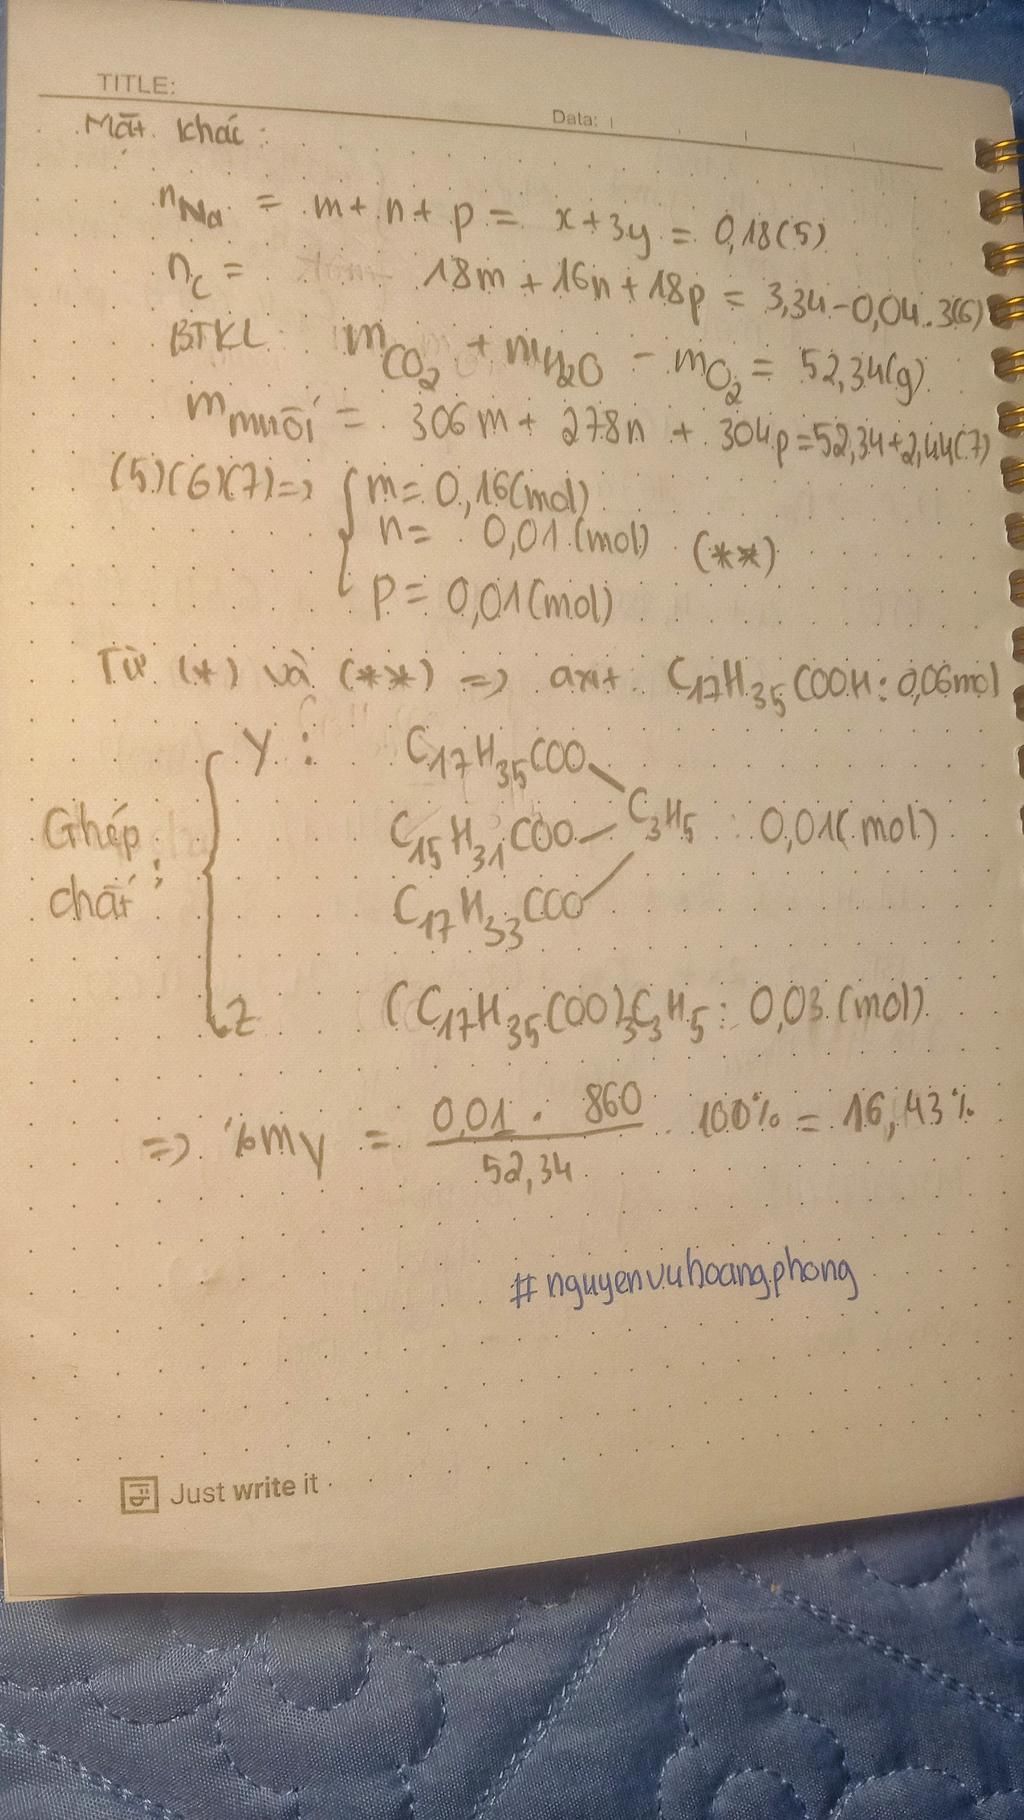 TITLE:
Data:
Mặt khác:
nNa = m + n + p = x + 3y = 0,18 (5)
nC = 18m + 16n + 18p = 3,34 - 0,04.3(6)
BTKL mCO2 + mH2O - mO2 = 52,34(g)
mmuối = 306m + 278n + 304p = 52,34 + 2,44(7)
(5)(6)(7) => m = 0,16(mol)
n = 0,01(mol) (**)
p = 0,01(mol)
Từ (*) và (**) => axit C17H35COOH: 0,06mol
Ghép chất:
Y: C17H35COO
C15H31COO C3H5 : 0,01(mol)
C17H33COO
Z (C17H35COO)3C3H5: 0,03(mol)
=> %mY = 0,01 . 860 / 52,34 . 100% = 16,43%
#nguyenvuhoangphong
Just write it